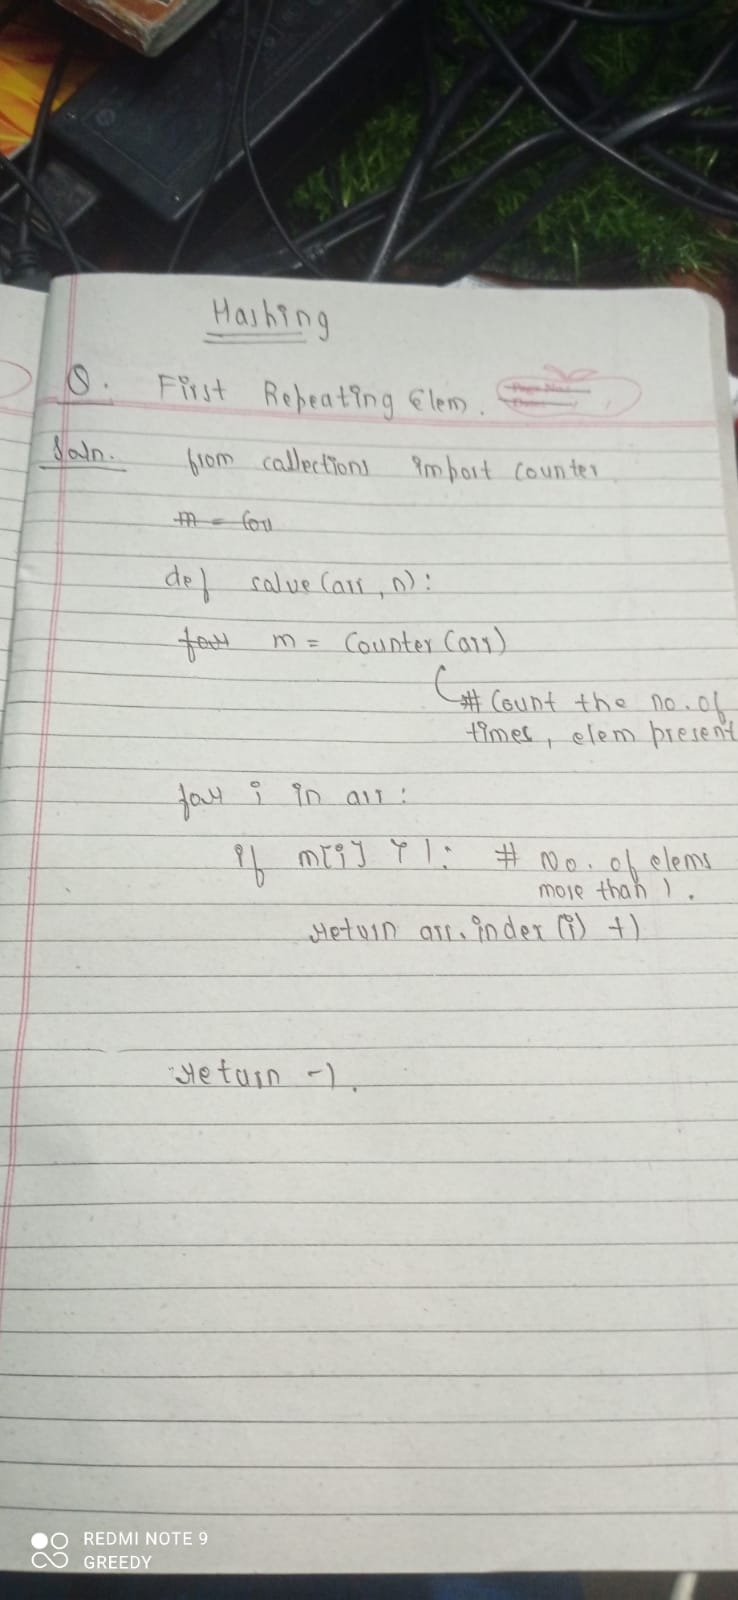 Hashing
Q. First Repeating Elem.
Soln. from collections import Counter
m = Cou
def solve (arr, n):
for m = Counter (arr)
# Count the no. of
times, elem present
for i in arr:
if m[i] > 1: # No. of elems
more than 1.
return arr.index (i) +1
return -1.
REDMI NOTE 9
GREEDY